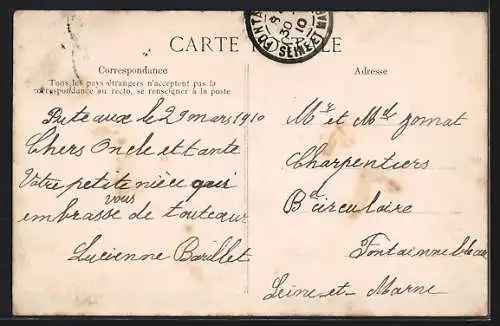 FONTA
30
10
SEINE-ET-MAR
CARTE LE
Correspondance
Tous les pays étrangers n'acceptent pas la
correspondance au recto, se renseigner à la poste
Puteaux le 29 mars 1910
Chers Oncle et tante
Votre petite nièce qui
vous
embrasse de tout cœur
Lucienne Barillet
Adresse
Mr et Me
Charpentiers
Bd circulaire
Fontainnebleau
Seine-et-Marne